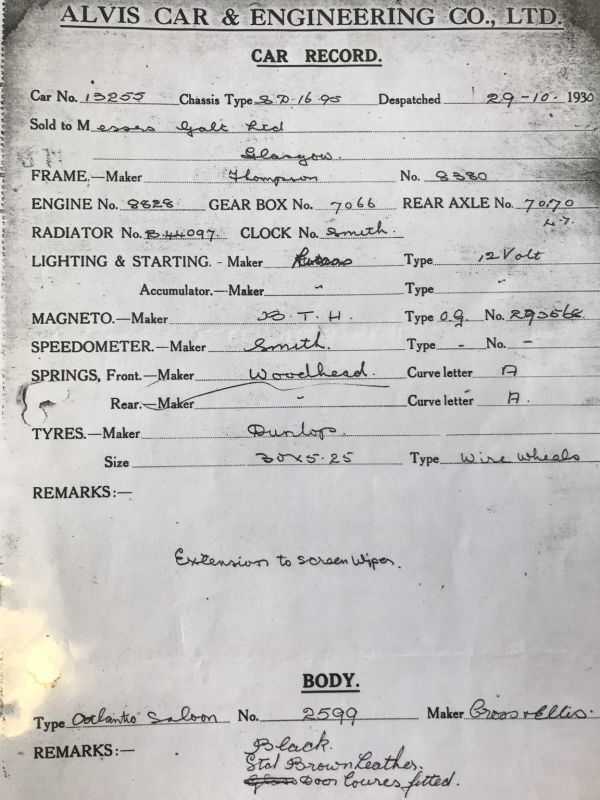 ALVIS CAR & ENGINEERING CO., LTD.
CAR RECORD.
Car No. 13255 Chassis Type S.D. 16.95 Despatched 29-10-1930
Sold to Messrs Galt Ltd
Glasgow.
FRAME.—Maker Thompson No. 8380
ENGINE No. 8828 GEAR BOX No. 7066 REAR AXLE No. 7070
4.7.
RADIATOR No. B44097. CLOCK No. Smith.
LIGHTING & STARTING. - Maker Type 12 Volt
Accumulator.—Maker " Type "
MAGNETO.—Maker B.T.H. Type O.G. No. 293568
SPEEDOMETER.—Maker Smith. Type - No. -
SPRINGS, Front.—Maker Woodhead. Curve letter A
Rear.—Maker " Curve letter A.
TYRES.—Maker Dunlop.
Size 30x5.25 Type Wire Wheels
REMARKS:—
Extension to screen Wiper.
BODY.
Type Saloon No. 2599 Maker Cross & Ellis.
REMARKS:— Black.
Std Brown Leather.
Door Louvres fitted.